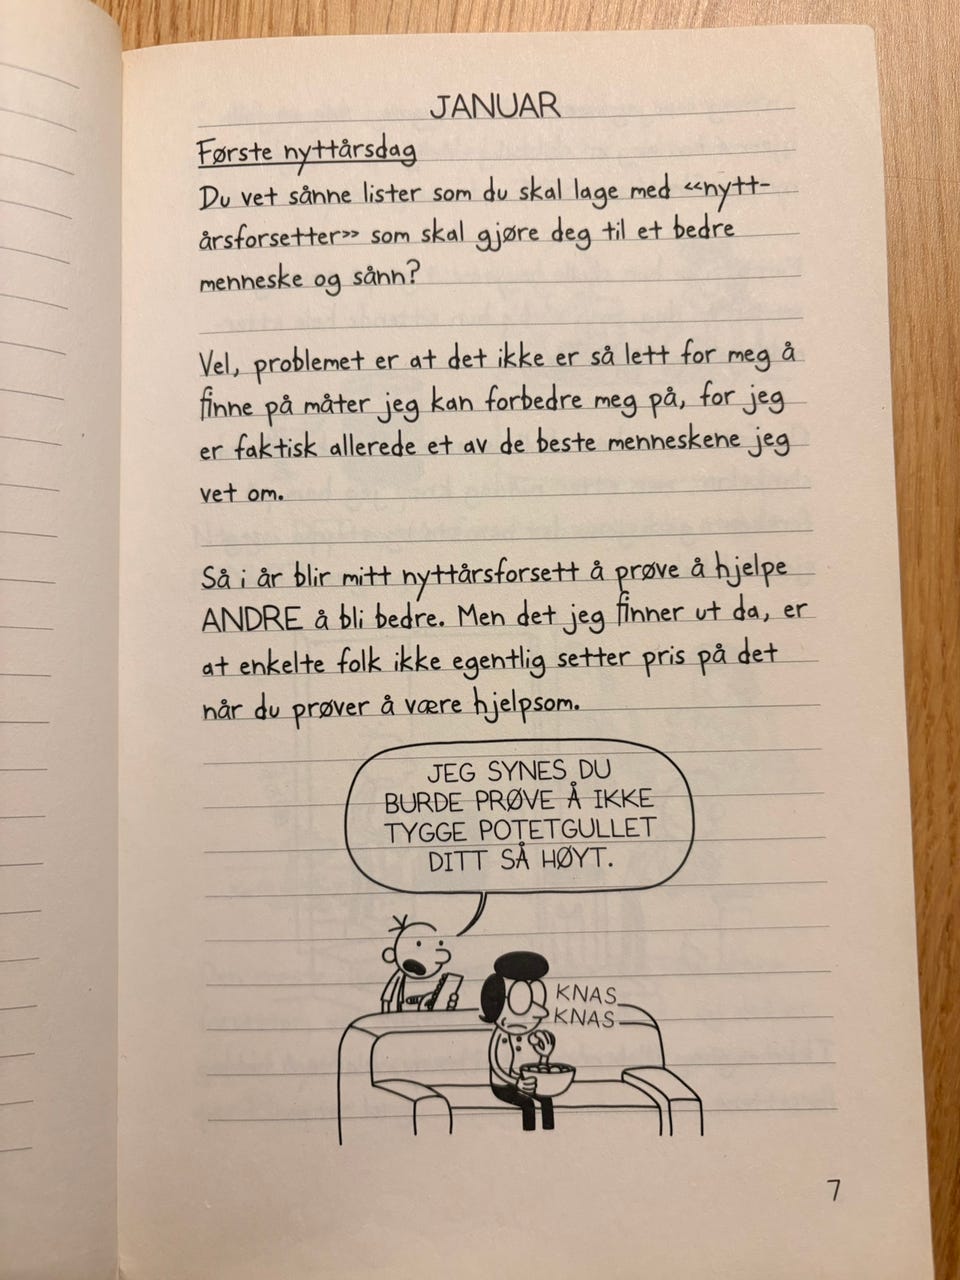 JANUAR
Første nyttårsdag
Du vet sånne lister som du skal lage med «nytt-
årsforsetter» som skal gjøre deg til et bedre
menneske og sånn?
Vel, problemet er at det ikke er så lett for meg å
finne på måter jeg kan forbedre meg på, for jeg
er faktisk allerede et av de beste menneskene jeg
vet om.
Så i år blir mitt nyttårsforsett å prøve å hjelpe
ANDRE å bli bedre. Men det jeg finner ut da, er
at enkelte folk ikke egentlig setter pris på det
når du prøver å være hjelpsom.
JEG SYNES DU
BURDE PRØVE Å IKKE
TYGGE POTETGULLET
DITT SÅ HØYT.
KNAS
KNAS
7